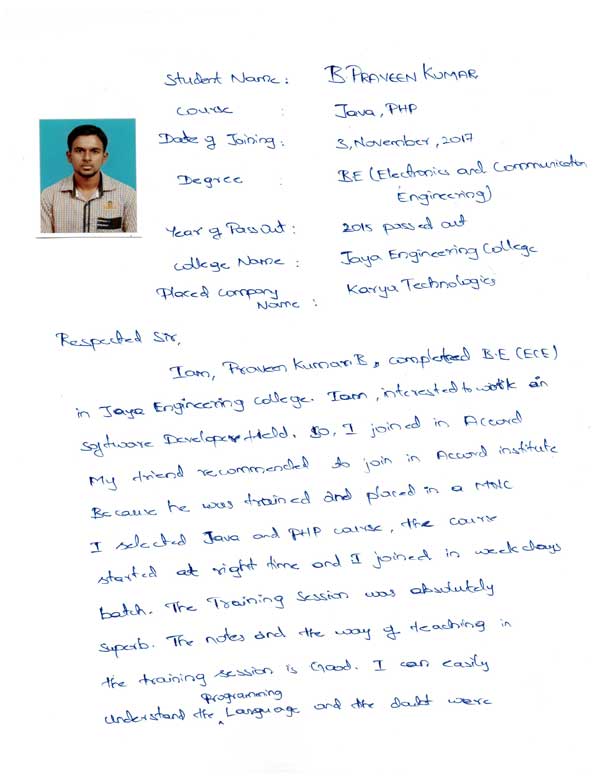 Student Name : B PRAVEEN KUMAR
course : Java, PHP
Date of Joining : 3, November, 2017
Degree : BE (Electronics and Communication
Engineering)
Year of Pass Out : 2015 passed out
college Name : Jaya Engineering College
Placed company
Name : Karya Technologies
Respected Sir,
Iam, Praveen Kumar.B, completed B.E (ECE)
in Jaya Engineering college. Iam, interested to work in
Software Developer Field. So, I joined in Accord
My friend recommended to join in Accord institute
Because he was trained and placed in a MNC
I selected Java and PHP course, the course
started at right time and I joined in weekdays
batch. The Training Session was absolutely
superb. The notes and the way of teaching in
the training session is Good. I can easily
understand the Programming Language and the doubt were